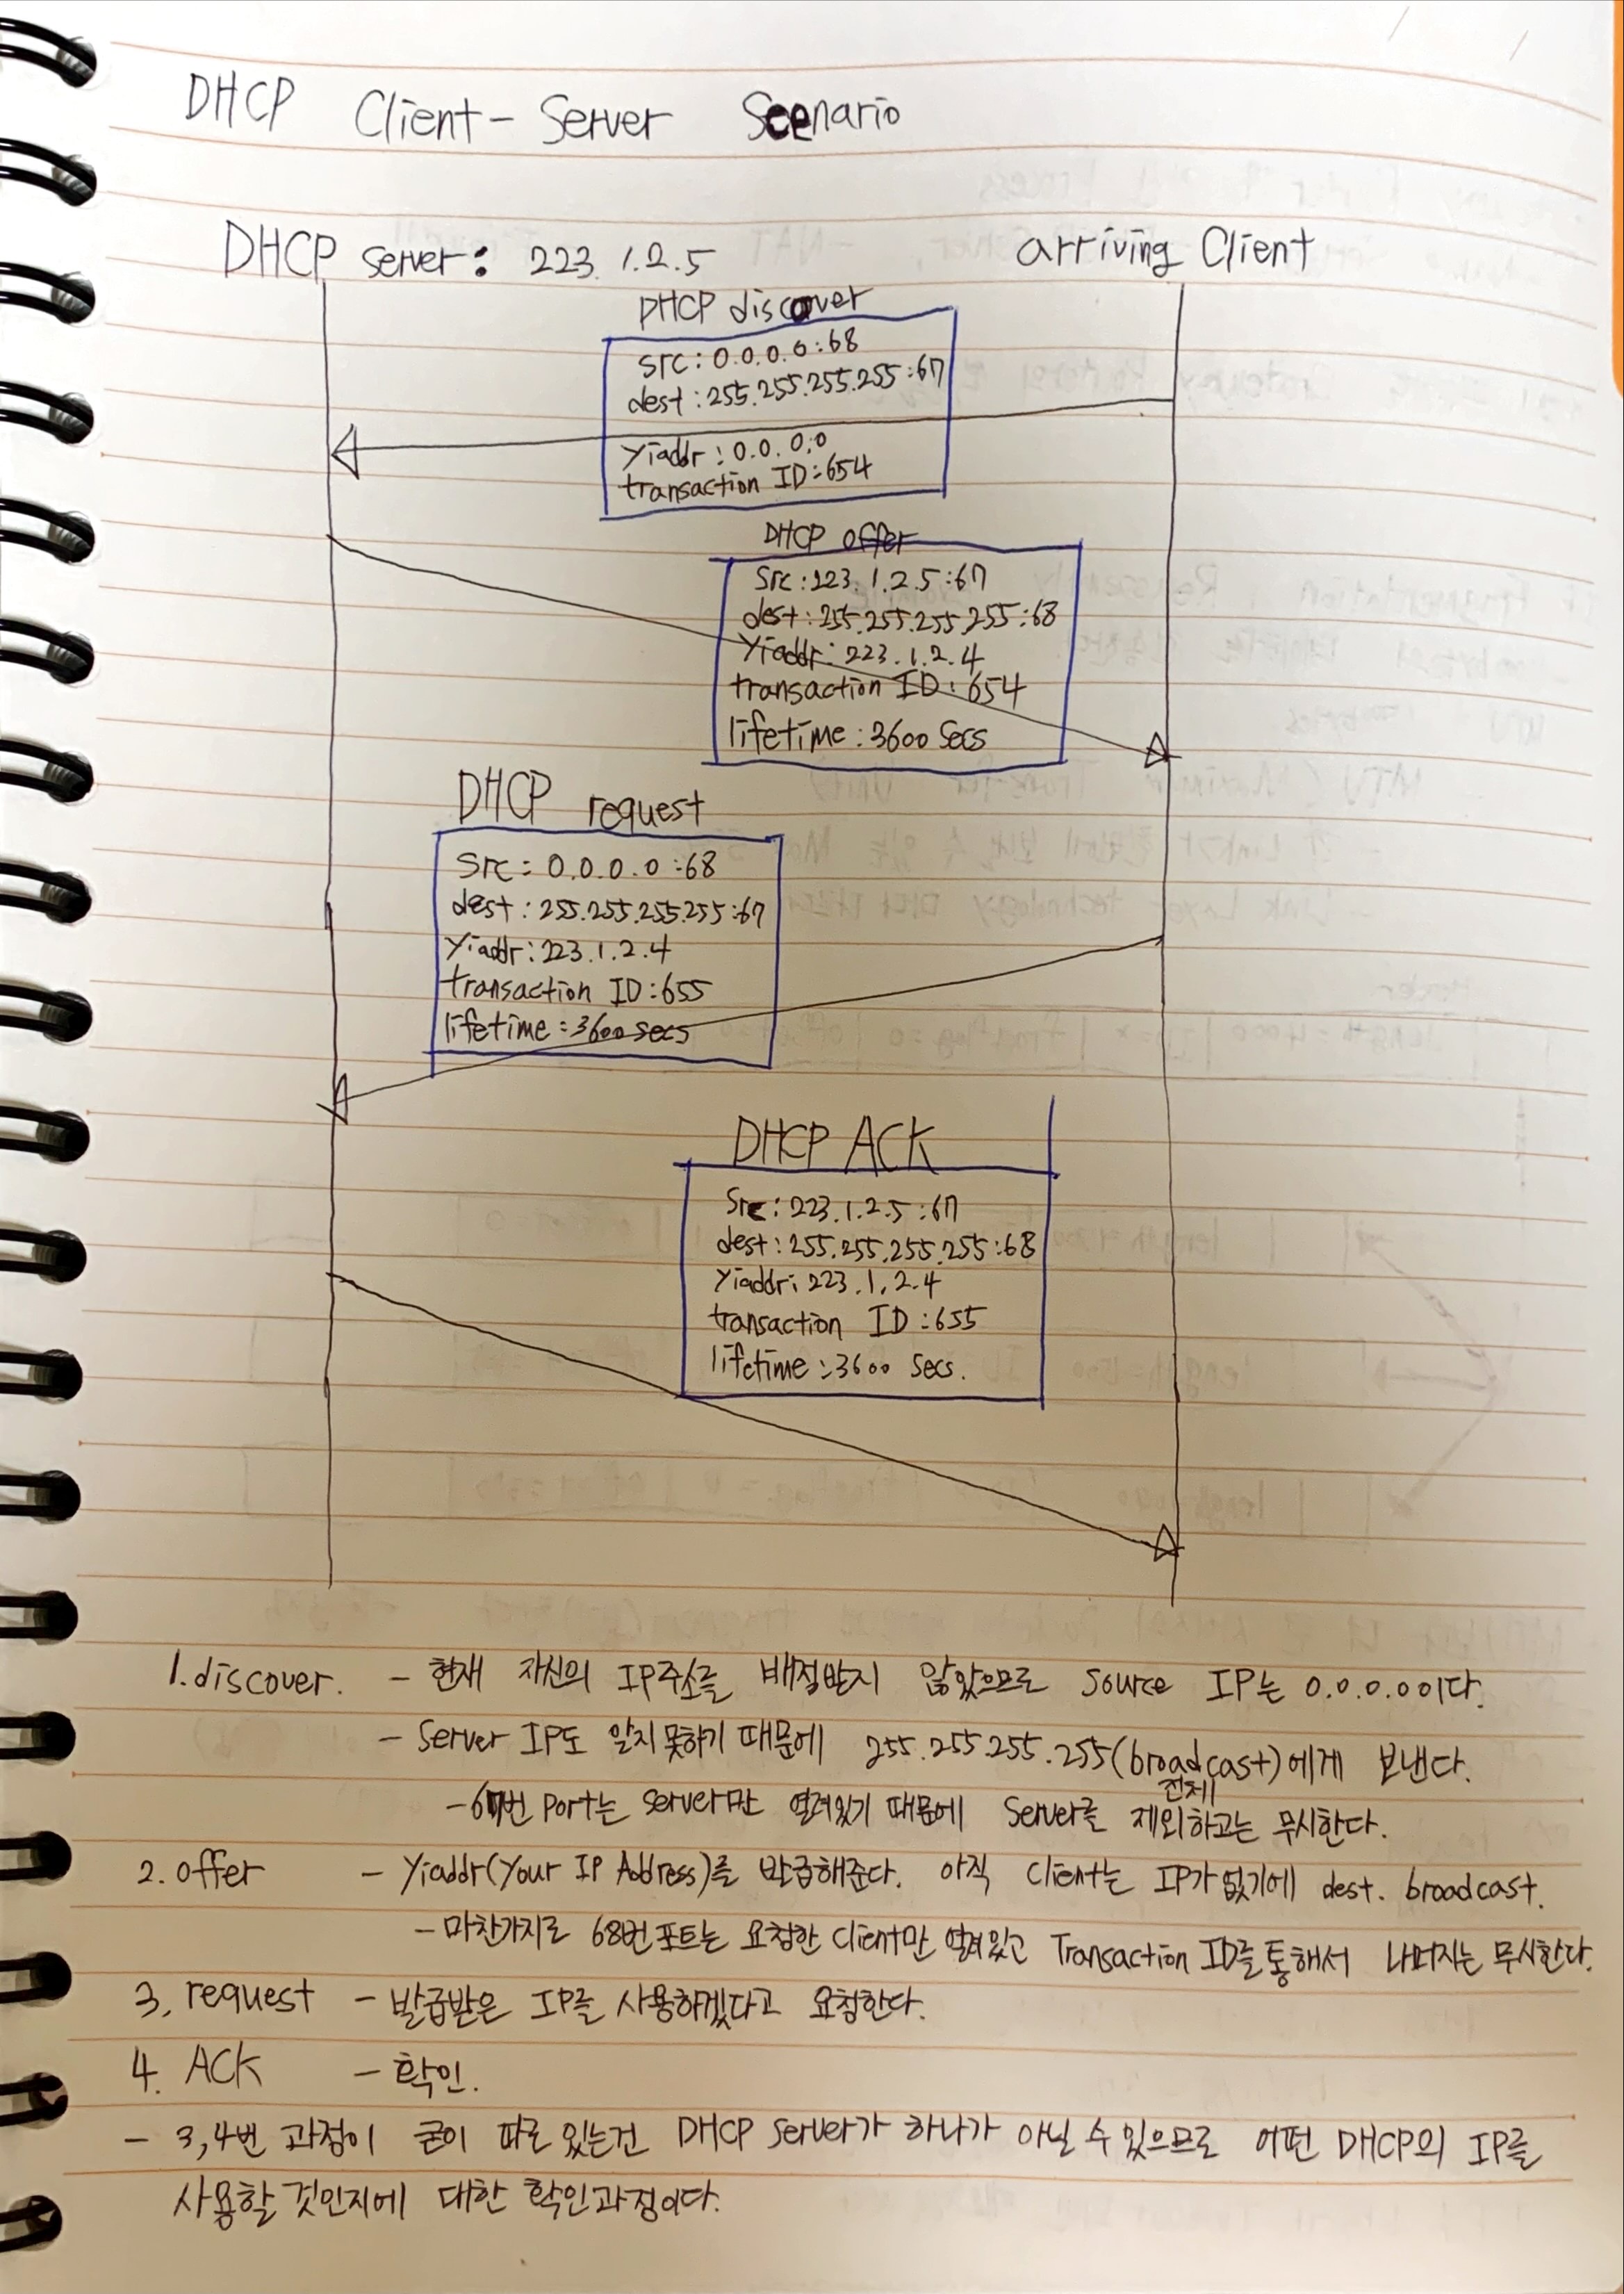 DHCP Client-Server Scenario
DHCP server: 223.1.2.5
arriving Client
DHCP discover
src: 0.0.0.0:68
dest: 255.255.255.255:67
Yiaddr: 0.0.0.0
transaction ID: 654
DHCP offer
Src: 223.1.2.5:67
dest: 255.255.255.255:68
Yiaddr: 223.1.2.4
transaction ID: 654
lifetime: 3600 Secs
DHCP request
Src: 0.0.0.0:68
dest: 255.255.255.255:67
Yiaddr: 223.1.2.4
transaction ID: 655
lifetime: 3600 secs
DHCP ACK
Src: 223.1.2.5:67
dest: 255.255.255.255:68
Yiaddr: 223.1.2.4
transaction ID: 655
lifetime: 3600 Secs.
1. discover. - 현재 자신의 IP주소를 배정받지 않았으므로 Source IP는 0.0.0.0이다.
- Server IP도 알지 못하기 때문에 255.255.255.255(broadcast)에게 보낸다.
전체
- 67번 port는 server만 열려있기 때문에 Server를 제외하고는 무시한다.
2. offer - Yiaddr(Your IP Address)를 발급해준다. 아직 Client는 IP가 없기에 dest. broadcast.
- 마찬가지로 68번 포트는 요청한 Client만 열려있고 Transaction ID를 통해서 나머지는 무시한다.
3. request - 발급받은 IP를 사용하겠다고 요청한다.
4. ACK - 확인.
- 3,4번 과정이 굳이 따로 있는건 DHCP server가 하나가 아닐 수 있으므로 어떤 DHCP의 IP를
사용할 것인지에 대한 확인과정이다.